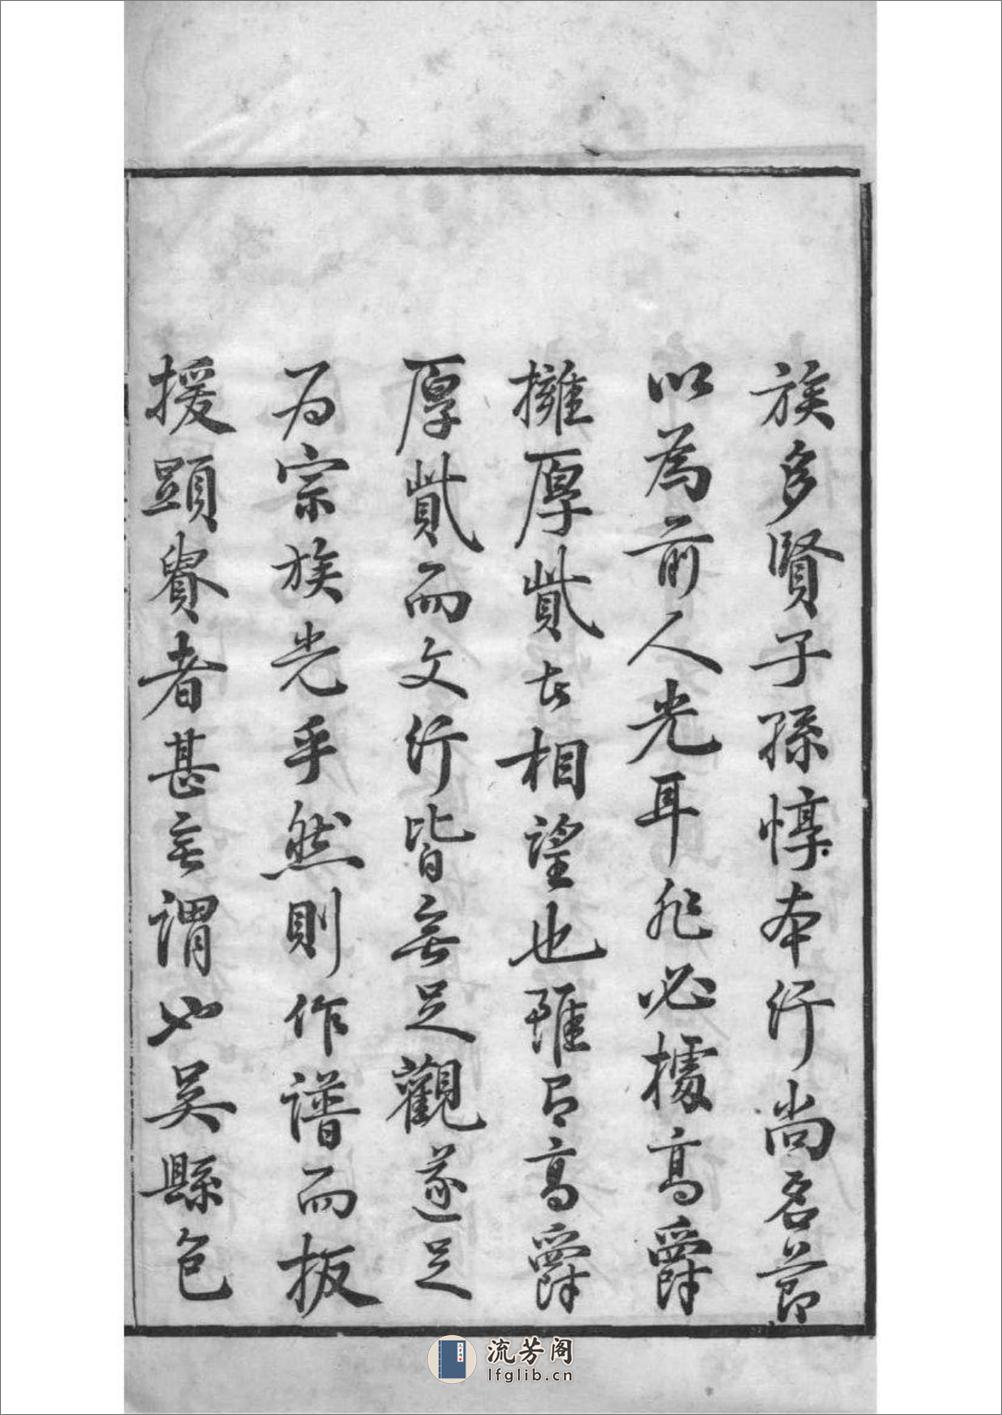 族多賢子孫惇本行尚名節
以為前人光耳非必據高爵
擁厚貲古相望也雖有高爵
厚貲而文行皆無足觀遂足
为宗族光乎然則作譜而扳
援顕貴者甚無謂也吴縣包
流芳阁
lfglib.cn